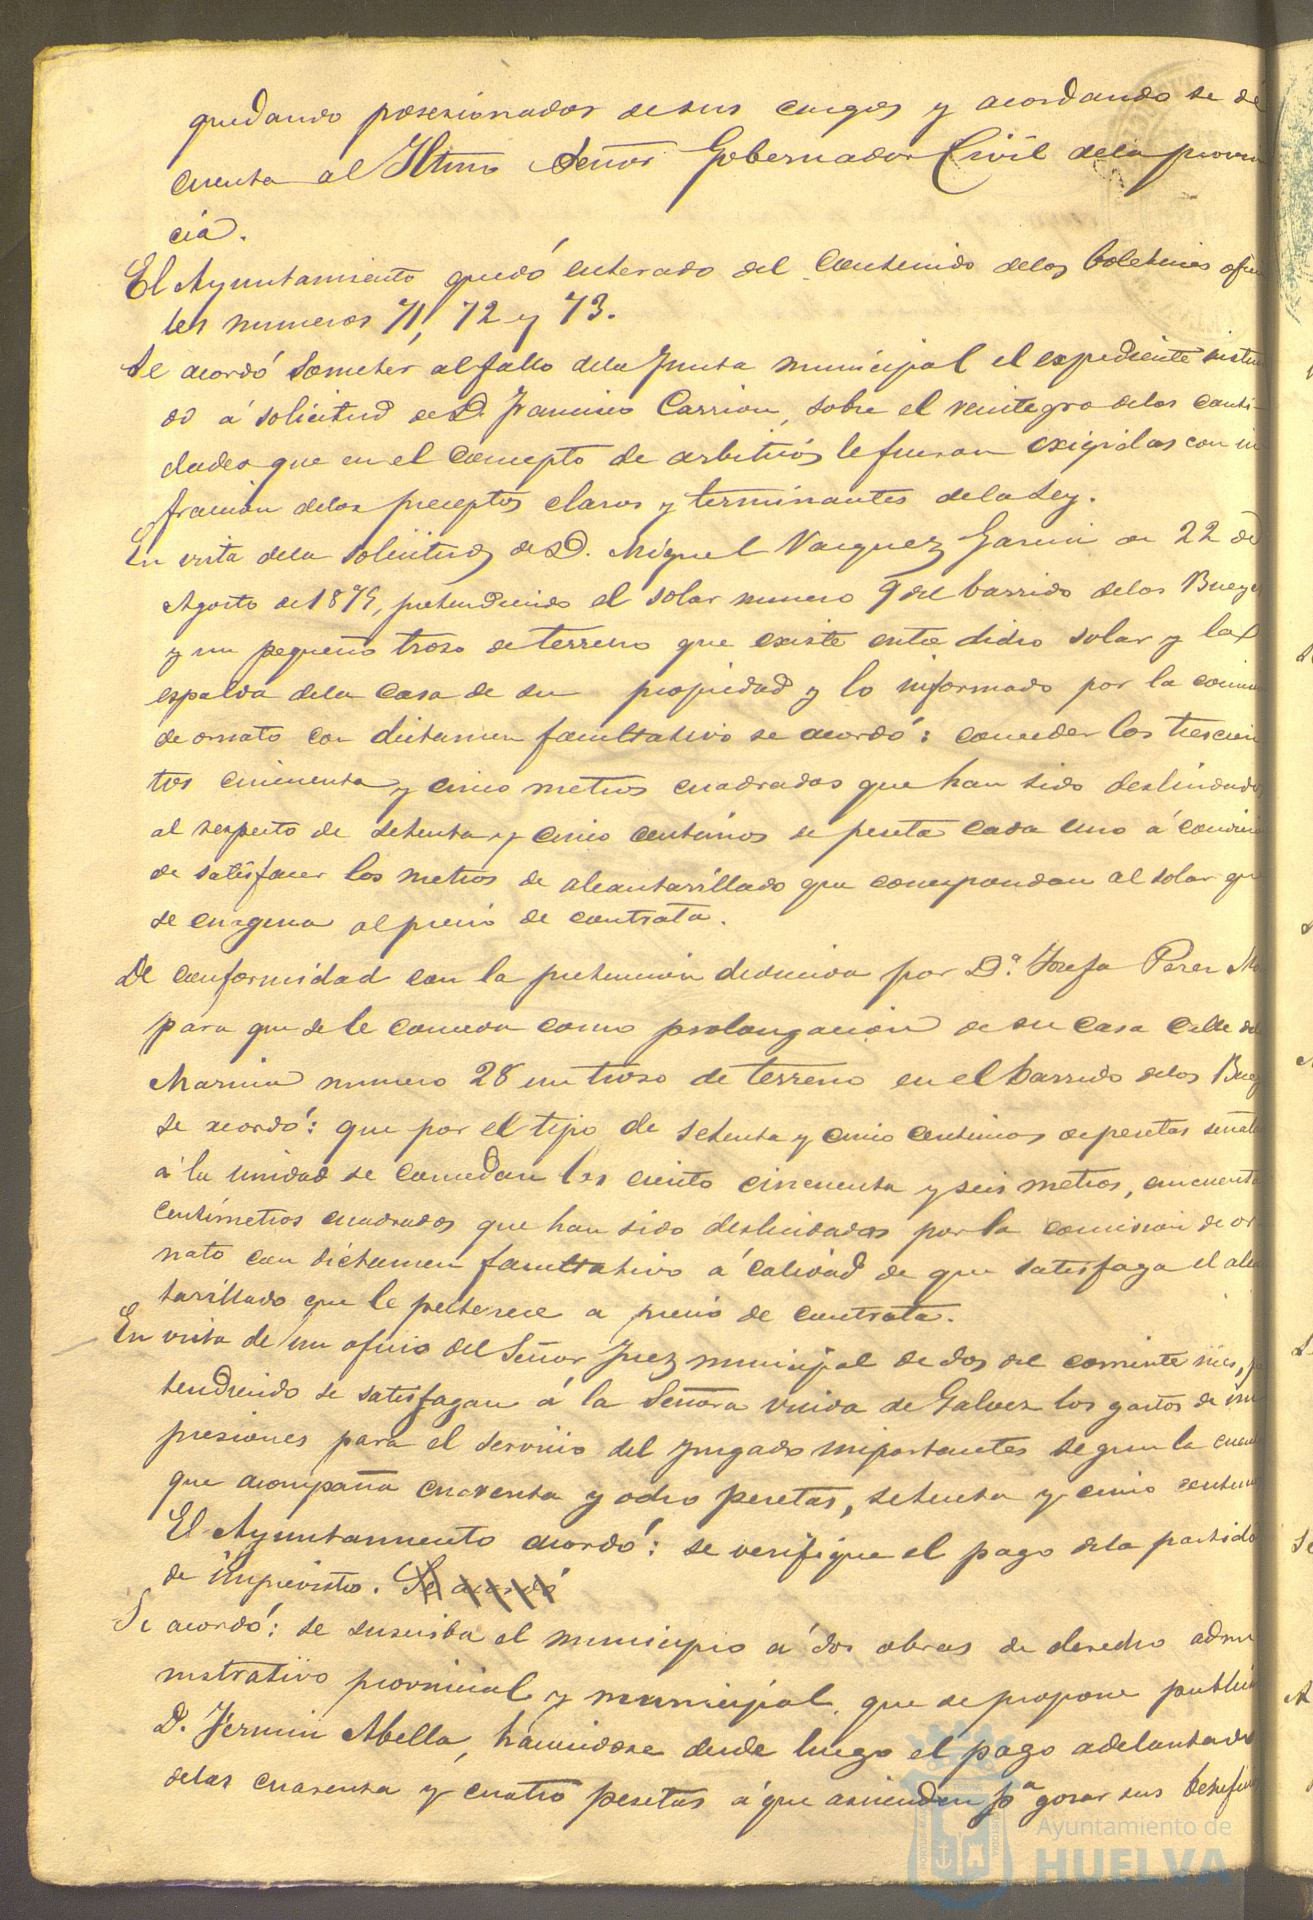 quedando posesionados desus cargos y acordando se dé
cuenta al Iltmo Señor Gobernador Civil dela provin
cia.
El Ayuntamiento quedó enterado del contenido delos boletines ofi
les numeros 71, 72 y 73.
Se acordó someter al fallo dela Junta municipal el expediente
do á solicitud de D. Francisco Carrion, sobre el reintegro delas canti-
dades que en el concepto de arbitrios le fueron exigidas con in
fracion delos preceptos claros y terminantes dela Ley.
En vista dela solicitud de D. Miguel Vazquez Garcia de 22 de
Agosto de 1879, pretendiendo el solar numero 9 del barrido delos Bueyes
y un pequeño troso de terreno que existe entre dicho solar y la
espalda dela casa de su propiedad y lo informado por la comision
de ornato con dictamen facultativo se acordó: conceder los trescien
tos cincuenta y cinco metros cuadrados que han sido deslindados
al respecto de setenta y cinco centimos de peseta cada uno á
de satisfacer los metros de alcantarillado que correspondan al solar que
se enagena al precio de contrata.
De conformidad con la pretencion deducida por D.ª Josefa Perez
para que se le conceda como prolongacion de su casa Calle dela
Marina numero 28 un troso de terreno en el barrido delos Buey
se acordó: que por el tipo de setenta y cinco centimos depesetas señala
á la unidad se concedan los ciento cincuenta y seis metros, cincuenta
centimetros cuadrados que han sido deslindados por la comision de or
nato con dictamen facultativo á calidad de que satisfaga el alcan
tarillado que le pertenece a precio de contrata.
En vista de un oficio del Señor Juez municipal de dos del corriente mes,
tendiendo se satisfagan á la Señora viuda de Galvez los gastos de im
presiones para el servicio del jusgado importantes segun la cuenta
que acompaña cuarenta y ocho pesetas, setenta y cinco centimos
El Ayuntamiento acordó: se verifique el pago dela partida
de imprevistos. Se acordó
Se acordó: se suscriba el municipio á dos obras de derecho admi
nistrativo provincial y municipal, que se propone publicar
D. Fermin Abella, haciendose desde luego el pago adelantado
delas cuarenta y cuatro pesetas á que ascienden pª gozar sus
Ayuntamiento de
HUELVA